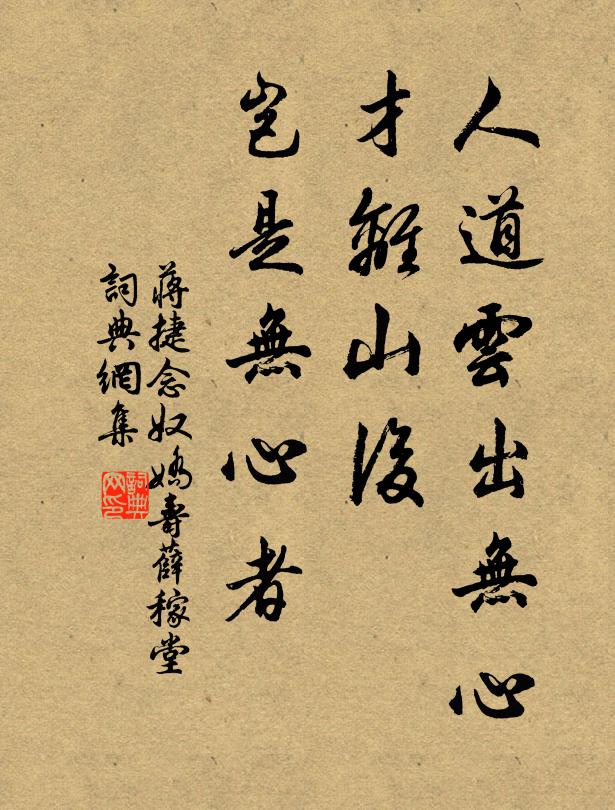 人道雲出無心
才離山後
豈是無心者
蔣捷念奴嬌壽薛稼堂
詞典網集
詞典网印